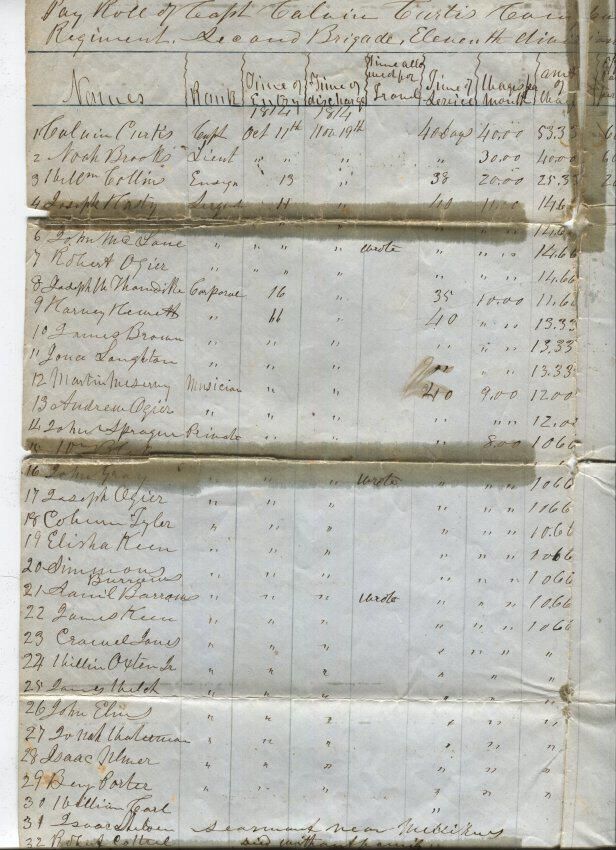 Pay Roll of Capt Calvin Curtis Com
Regiment, Second Brigade, Eleventh division
Names Rank Time of Entry 1814 Time of discharge 1814 Time allowed for Travel Time of Service Wages per Month amt of Wages
1 Calvin Curtis Capt Oct 11th Nov 19th 40 days 40.00 53.33
2 Noah Brooks Lieut " " " " 30.00 40.00
3 Willm Collins Ensign " 13 " 38 20.00 25.3
4 Joseph Hasty " 11 " 40 11.00 14.6
14.6
6 John McLane " " " " wrote " " " 14.66
7 Robert Ogier " " " " " " " 14.66
8 Joseph W Thorndike Corporal 16 " 35 10.00 11.66
9 Harvey Hewett " 11 " 40 " " 13.33
10 James Brown " " " " " " 13.33
11 Jona Langhton " " " " " " 13.33
12 Martin Meservy Musician " " " 40 9.00 12.00
13 Andrew Ogier " " " " " " 12.00
14 John Sprague Private " " " 8.00 10.66
15
16 John Gray " " " wrote " " " 10.66
17 Joseph Ogier " " " " " " 10.66
18 Coburn Tyler " " " " " " 10.66
19 Elisha Keen " " " " " " 10.66
20 Simmons Burrows " " " " " " 10.66
21 Saml Barrows " " " wrote " " " 10.66
22 James Keen " " " " " " 10.66
23 Jones " " " " " " "
24 Willm Oxten Jr " " " " " "
25 James " " " " " "
26 John " " " " " "
27 Jonah " " " " " "
28 Isaac Ulmer " " " " " "
29 Benj Porter " " " " " "
30 William Carl "
31 Isaac Searsmont near Millikins
32 Robert died without family